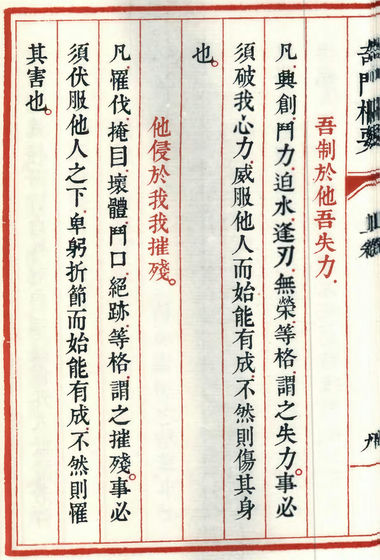 吾制於他吾失力.
凡.興創鬥力.迫水逢刃.無榮等格.謂之失力。事必
須破我心力.威服他人而始能有成.不然則傷其身
也。
他侵於我我摧殘。
凡.罹伐掩目.壞體鬥口.絕跡等格.謂之摧殘。事必
須伏服他人之下.卑躬折節而始能有成.不然則罹
其害也。